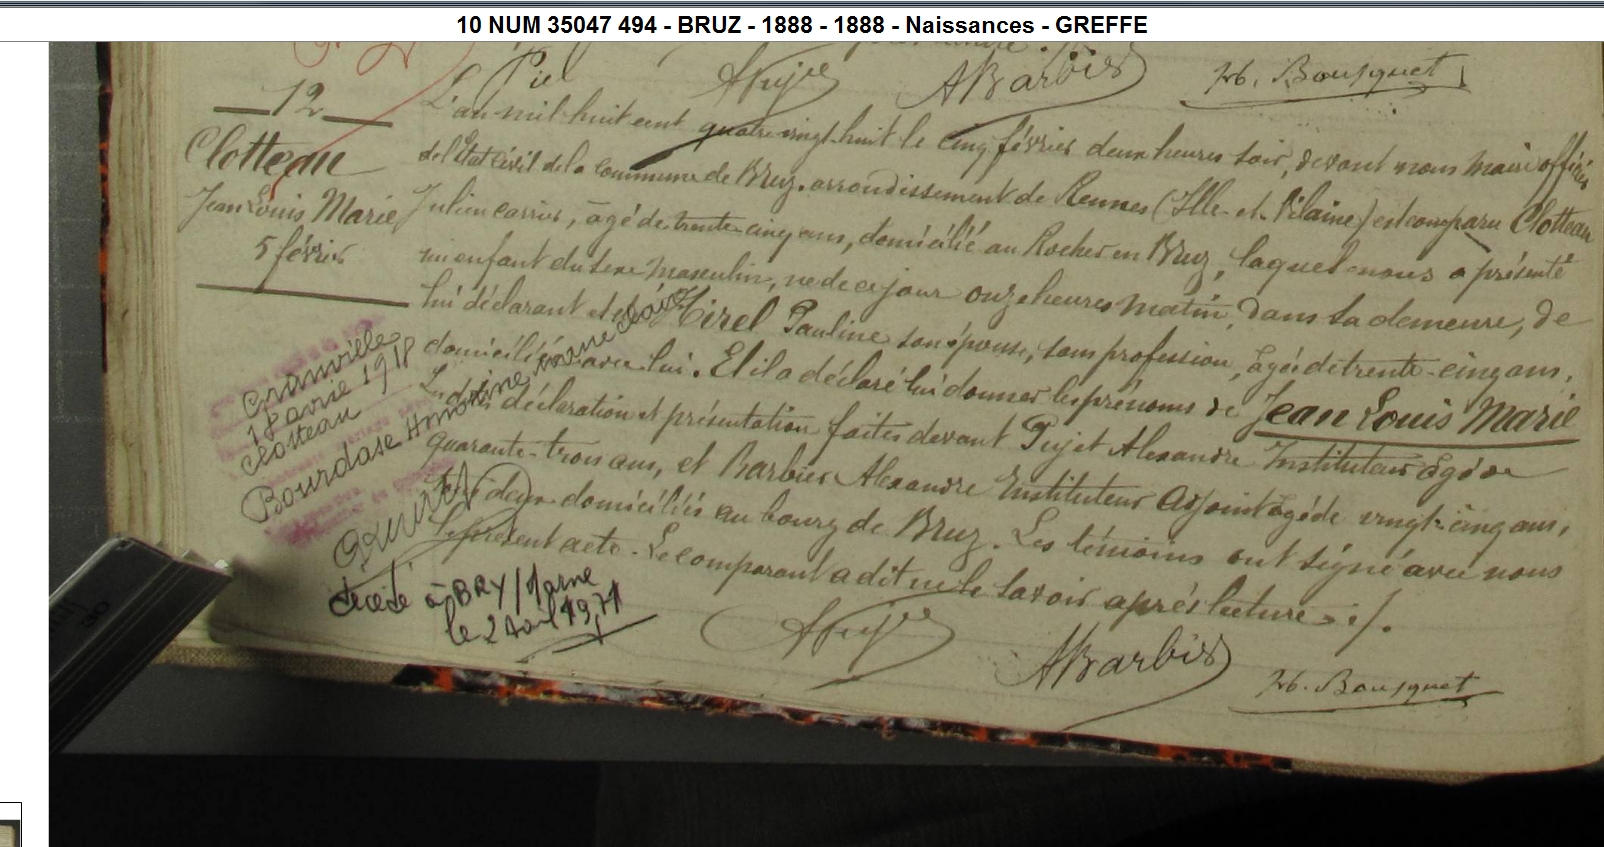 10 NUM 35047 494 - BRUZ - 1888 - 1888 - Naissances - GREFFE
Piel APujet ABarbier Hb. Bousquet
12
Clotteau
Jean Louis Marie
5 février
L'an mil huit cent quatre vingt huit le cinq février deux heures soir, devant nous maire officier
de l'Etat civil de la commune de Bruz, arrondissement de Rennes (Ille-et-Vilaine) est comparu Clotteau
Julien carrier, âgé de trente-cinq ans, domicilié au Rocher en Bruz, lequel nous a présenté
un enfant du sexe masculin, né de ce jour onze heures matin, dans sa demeure, de
lui déclarant et de Hirel Pauline son épouse, sans profession, âgée de trente-cinq ans,
domiciliée avec lui. Et il a déclaré lui donner les prénoms de Jean Louis Marie
Les dites déclaration et présentation faites devant Pujet Alexandre Instituteur âgé de
quarante-trois ans, et Barbier Alexandre Instituteur adjoint âgé de vingt-cinq ans,
tous deux domiciliés au bourg de Bruz. Les témoins ont signé avec nous
le présent acte. Le comparant a dit ne le savoir après lecture ./.
Granville
18 avril 1918
Clotteau
Bourdase Honorine Marie
décédé à BRY/Marne
le 2 Août 1971
APujet
ABarbier
Hb. Bousquet